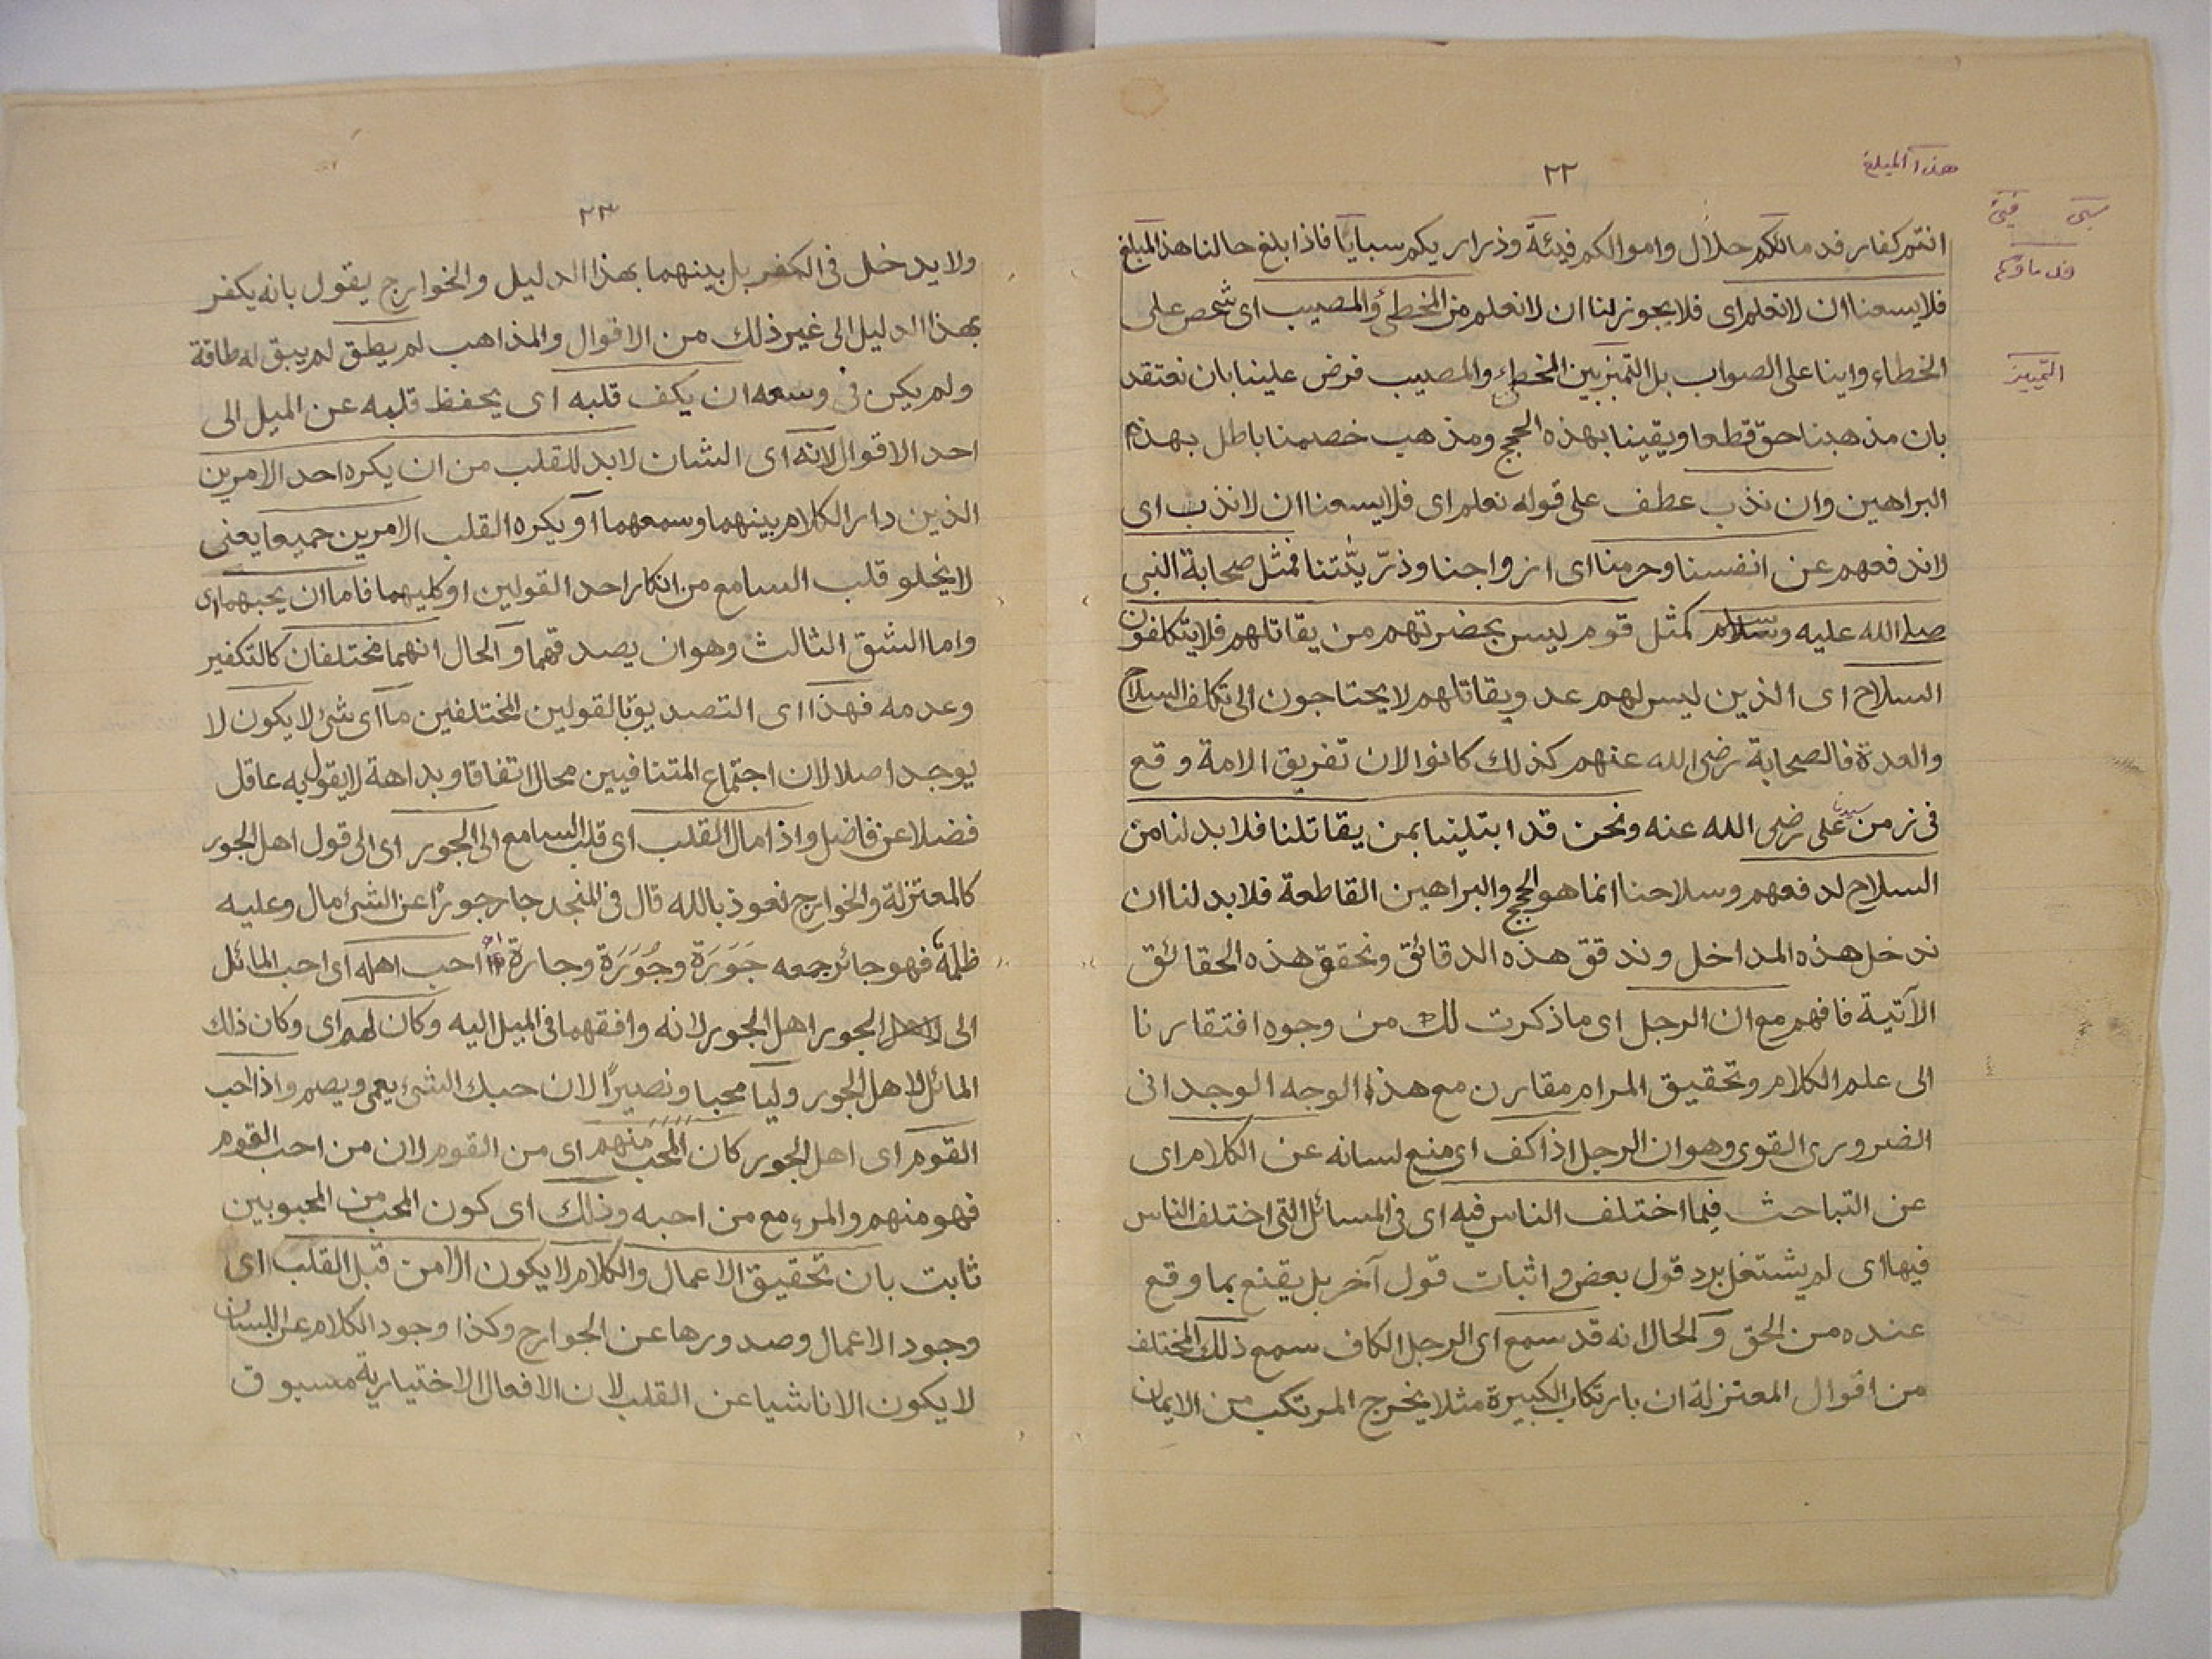 هذا المبلغ
٢٢
سبى فيئ
فدماؤكم
التمييز
انتم كفار فدمائكم حلال واموالكم فيئة وذراريكم سبايا فاذا بلغ حالنا هذا المبلغ
فلا يسعنا ان لا نعلم اى فلا يجوز لنا ان لا نعلم من المخطئ والمصيب اى شخص على
الخطاء واينا على الصواب بل التميز بين المخطئ والمصيب فرض علينا بان نعتقد
بان مذهبنا حق قطعا ويقينا بهذه الحجج ومذهب خصمنا باطل بهذه
البراهين وان نذب عطف على قوله نعلم اى فلا يسعنا ان لا نذب اى
لا ندفعهم عن انفسنا وحرمنا اى ازواجنا وذرّيّتنا فمثل صحابة النبى
صلى الله عليه وسلام كمثل قوم ليس بحضرتهم من يقاتلهم فلا يتكلفون
السلاح اى الذين ليس لهم عدو يقاتلهم لا يحتاجون الى تكلف السلاح
والعدة فالصحابة رضى الله عنهم كذلك كانوا لان تفريق الامة وقع
فى زمن سيدنا على رضى الله عنه ونحن قد ابتلينا بمن يقاتلنا فلا بد لنا من
السلاح لدفعهم وسلاحنا انما هو الحجج والبراهين القاطعة فلا بد لنا ان
ندخل هذه المداخل وندقق هذه الدقائق ونحقق هذه الحقائق
الآتية فافهم مع ان الرجل اى ما ذكرت لك من وجوه افتقارنا
الى علم الكلام وتحقيق المرام مقارن مع هذا الوجه الوجدانى
الضرورى القوى وهو ان الرجل اذا كف اى منع لسانه عن الكلام اى
عن التباحث فيما اختلف الناس فيه اى فى المسائل التى اختلف الناس
فيها اى لم يشتغل برد قول بعض واثبات قول آخر بل يقنع بما وقع
عنده من الحق و الحال انه قد سمع اى الرجل الكاف سمع ذلك المختلف
من اقوال المعتزلة ان بارتكاب الكبيرة مثلا يخرج المرتكب من الايمان
٢٣
ولا يدخل فى الكفر بل بينهما بهذا الدليل والخوارج يقول بانه يكفر
بهذا الدليل الى غير ذلك من الاقوال والمذاهب لم يطق لم يبق له طاقة
ولم يكن فى وسعه ان يكف قلبه اى يحفظ قلبه عن الميل الى
احد الاقوال لانه اى الشان لا بد للقلب من ان يكره احد الامرين
الذين دار الكلام بينهما وسمعهما او يكره القلب الامرين جميعا يعنى
لا يخلو قلب السامع من انكار احد القولين او كليهما فاما ان يحبهما اى
واما الشق الثالث وهو ان يصدقهما و الحال انهما مختلفان كالتكفير
وعدمه فهذا اى التصديق بالقولين المختلفين ما اى شئ لا يكون لا
يوجد اصلا لان اجتماع المتنافيين محال اتفاقا وبداهة لا يقول به عاقل
فضلا عن فاضل واذا مال القلب اى قلب السامع الى الجور اى الى قول اهل الجور
كالمعتزلة والخوارج نعوذ بالله قال فى المنجد جار جورًا عن الشئ مال وعليه
ظلمه فهو جائر جمعه جَوَرَة وجُوَرَة وجارة احب اهله اى احب المائل
الى الجور اهل الجور لانه وافقهما فى الميل اليه وكان لهم اى وكان ذلك
المائل لاهل الجور وليا محبا ونصيرًا لان حبك الشئ يعمى ويصم واذا احب
القوم اى اهل الجور كان المحب منهم اى من القوم لان من احب القوم
فهو منهم والمرء مع من احبه وذلك اى كون المحب من المحبوبين
ثابت بان تحقيق الاعمال والكلام لا يكون الا من قبل القلب اى
وجود الاعمال وصدورها عن الجوارح وكذا وجود الكلام عن اللسان
لا يكون الا ناشيا عن القلب لان الافعال الاختيارية مسبوق